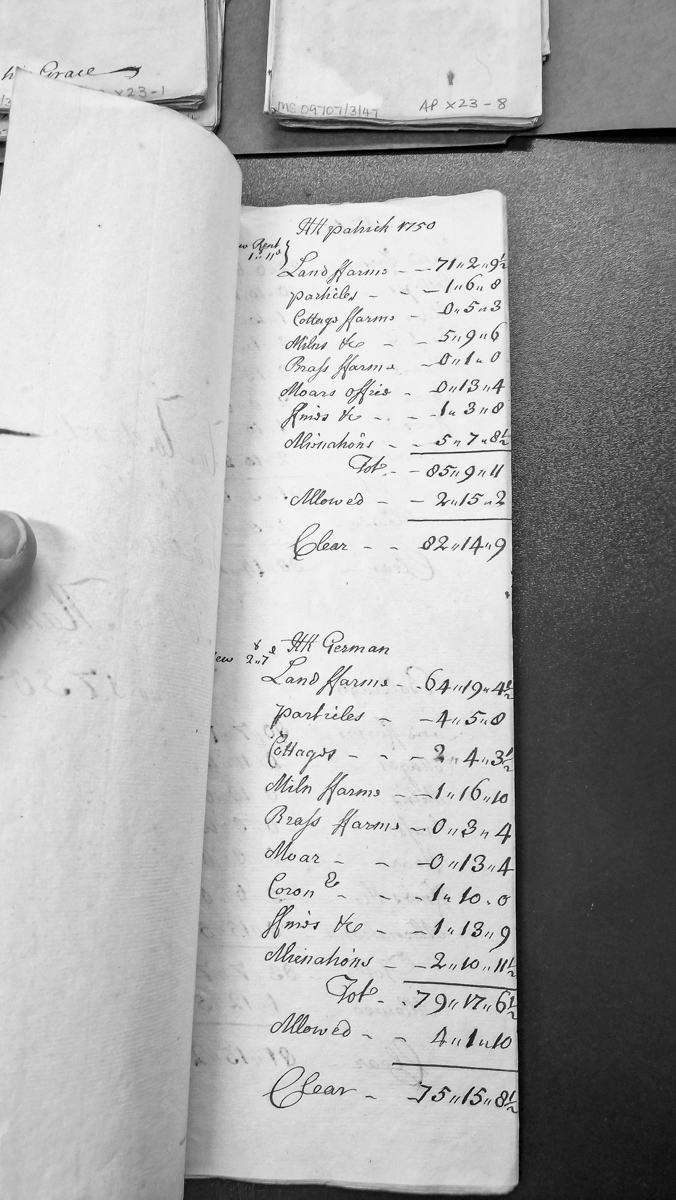 Grace
X23-1
MS 09707/3/47 AP X23-8
KK patrick 1750
w Rent
1"11d
Land ffarms - - 71"2"9½
particles - - 1"6"8
Cottage ffarms - 0"5"3
Milns &c - 5"9"6
Brass ffarms - 0"1"0
Moars office - 0"13"4
ffines &c - - 1"3"8
Alienations - - 5"7"8½
Tot - - 85"9"11
Allowed - - 2"15"2
Clear - - 82"14"9
KK German
ew 2"7
Land ffarms - 64"19"4½
particles - - 4"5"8
Cottages - - - 2"4"3½
Miln ffarms - 1"16"10
Brass ffarms - 0"3"4
Moar - - 0"13"4
Coron r - - 1"10"0
ffines &c - - 1"13"9
Alienations - - 2"10"11½
Tot - - 79"17"6½
Allowed - - 4"1"10
Clear - 75"15"8½